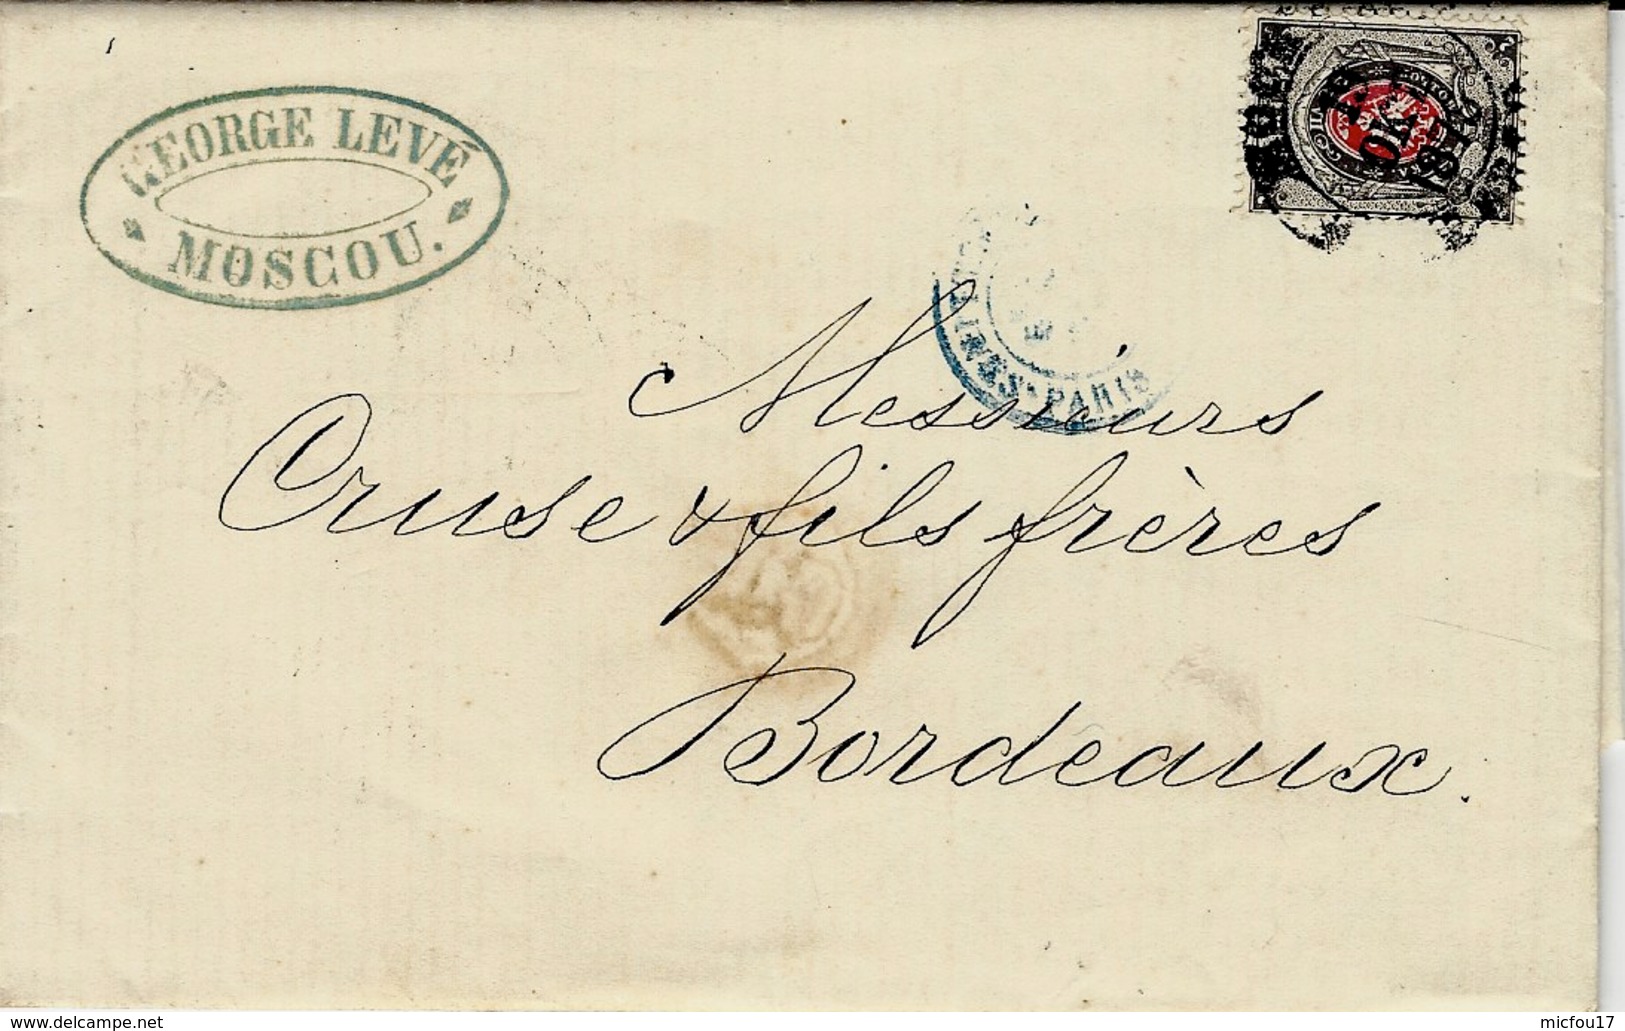 GEORGE LEVÉ
MOSCOU.
ОКТ
187
PARIS
Messieurs
Cruse & fils frères
Bordeaux.
www.delcampe.net
micfou17